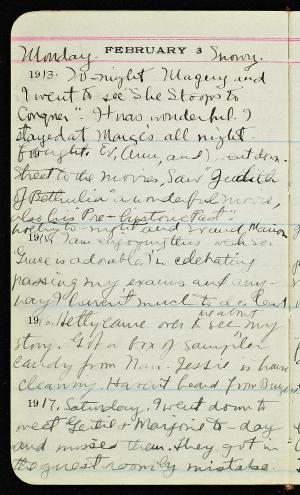 Monday. FEBRUARY 3 Snowy.
1913. To-night Magery and
I went to see "She Stoops to
Conquer". It was wonderful. I
stayed at Marge's all night.
19 Ev, Ann, and I went down
street to the movies, Saw "Judith
of Bethulia" a wonderful movie,
also "Pre-historic Past".
to-night and Marion
191 I am enjoying this week so.
Grace is adorable. I'm celebrating
passing my exams and any-
way I haven't much to do
19 Hetty came over to see me about my
story. Got a box of sampler
candy from Nan. Jessie is here
cleaning. Haven't heard from
1917. Saturday. I went down to
meet Gertie + Marjorie to-day
and missed them. They got in
the guest room by mistake.